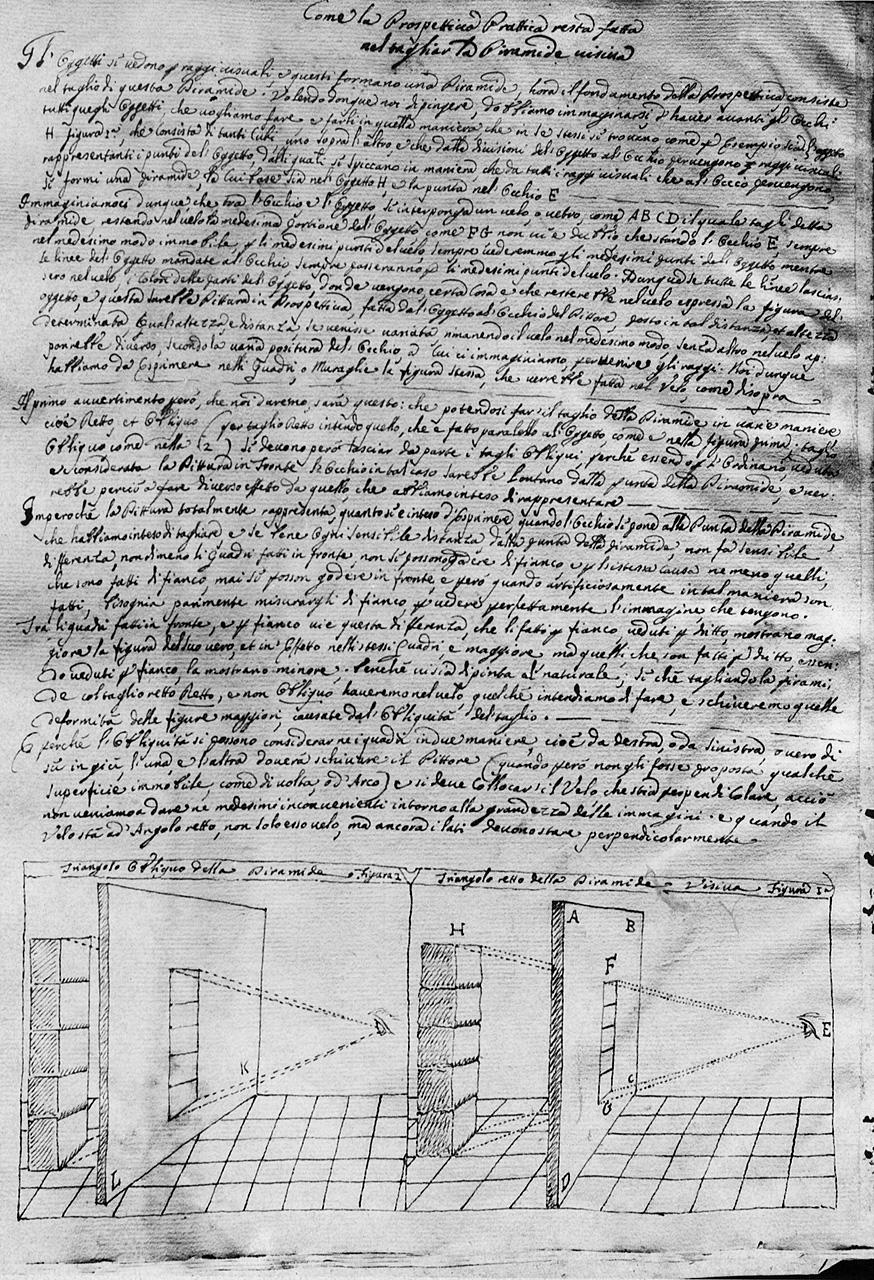 Come la Prospettiva Prattica resta fatta
nel tagliar la Piramide visiva
Gl. Oggetti si vedono p raggi visuali, e questi formano una Piramide, hora il fondamento della Prospettiva consiste
nel taglio di questa Piramide. Volendo donque noi dipingere, dobbiamo immaginarsi d'haver avanti gl'Occhi
tutti quegli Oggetti, che vogliamo fare e farli in quella maniera che in se stessi si trovano come p Esempio sia l'oggetto
H figura 1a, che consista di tanti Cubi uno sopra l'altro e che dalle divisioni del Oggetto al Occhio pervengono p raggi visuali
rappresentanti i punti del Oggetto, dalli quali si spiccano in maniera che da tutti i raggi visuali che al Occo pervengono,
si formi una piramide, la lui base sia nel Oggetto H e la punta nel Occhio E
Immaginiamoci dunque che tra l'Occhio e l'Oggetto si interponga un velo o vetro, come ABCD il quale tagli detta
Piramide restando nel velo la medesima porzione del Oggetto come FG non vi è dubbio che stando l'Occhio E sempre
nel medesimo modo immobile, p li medesimi punti del velo sempre vederemo gli medesimi punti del Oggetto mentre
le linee del Oggetto mandate al Occhio sempre passeranno p li medesimi punti del velo. Dunque se tutte le linee lascias:
sero nel velo, i colori delle parti del Oggetto, donde vengono, certa cosa è che resterebbe nel velo espressa la figura del
oggetto, e questa sarebbe Pittura in Prospettiva, fatta dal Oggetto al Occhio del Pittore posto in tal distanza, et altezza
determinata Qual altezza, e distanza se venisse variata rimanendo il velo nel medesimo modo, senz'altro nel velo ap:
parirebbe diverso, secondo la varia positura del Occhio, a cui ci immaginiamo, pervenire gli raggi. Noi dunque
habbiamo da Esprimere nelli Quadri, o Muraglie la figura stessa, che verrebbe fatta nel Velo come di sopra
Il primo avvertimento però, che noi daremo, sarà questo: che potendosi far il taglio della Piramide in varie maniere
cioè Retto, et Obliquo (per taglio Retto intendo quello, che è fatto paralello al Oggetto come è nella figura prima: taglio
Obliquo come nella (2) si devono però lasciar da parte i tagli Obliqui, perché essendo p l'Ordinario veduta
e considerata la Pittura in fronte l'Occhio in tal caso sarebbe lontano dalla punta della Piramide e ver:
rebbe perciò a fare diverso effetto da quello che abbiamo inteso di rappresentare
Imperoché la Pittura totalmente rappresenta quanto si è inteso d'Esprimere quando l'Occhio si pone alla Punta della Piramide
che habbiamo inteso di tagliare e se bene ogni sensibile distanza dalla punta della piramide non fa sensibile
differenza, nondimeno li Quadri fatti in fronte, non si possono vedere di fianco e p l'istessa causa ne meno quelli,
che sono fatti di fianco, mai si posson godere in fronte e però quando artificiosamente in tal maniera son
fatti, bisogna parimente misurarghi di fianco p vedere perfettamente l'immagine, che tengono.
Tra li quadri fatti in fronte, e p fianco vi è questa differenza, che li fatti p fianco, veduti p dritto, mostrano mag:
giore la figura del suo vero, et in Effetto nelli stessi Quadri è maggiore ma quelli che son fatti p dritto, essen:
do veduti p fianco, la mostrano minore. benché vi sia dipinta al naturale; Si che tagliando la pirami;
de col taglio retto Retto, e non Obliquo haveremo nel velo quelche intendiamo di fare, e schiveremo quelle
deformità delle figure maggiori, causate dal Obliquità del taglio.
E perché l'Obliquità si possono considerar nei quadri in due maniere, cioè da destra, o da sinistra, o vero di
sù in giù, l'una, e l'altra doverà schivare il Pittore (quando però non gli fosse proposta qualche
superficie immobile, come di volta, od'Arco) e si deve Collocarsi il Velo che stia perpendicolare, acciò
non veniamo a dare ne medesimi inconvenienti intorno alla grandezza delle immagini. e quando il
Velo stà ad'Angolo retto, non solo esso velo, ma ancora i lati devono stare perpendicolarmente.
Triangolo Obliquo della Piramide Figura 2
Triangolo retto della Piramide Visiva Figura 1a
H
A
B
F
E
K
C
G
L
D